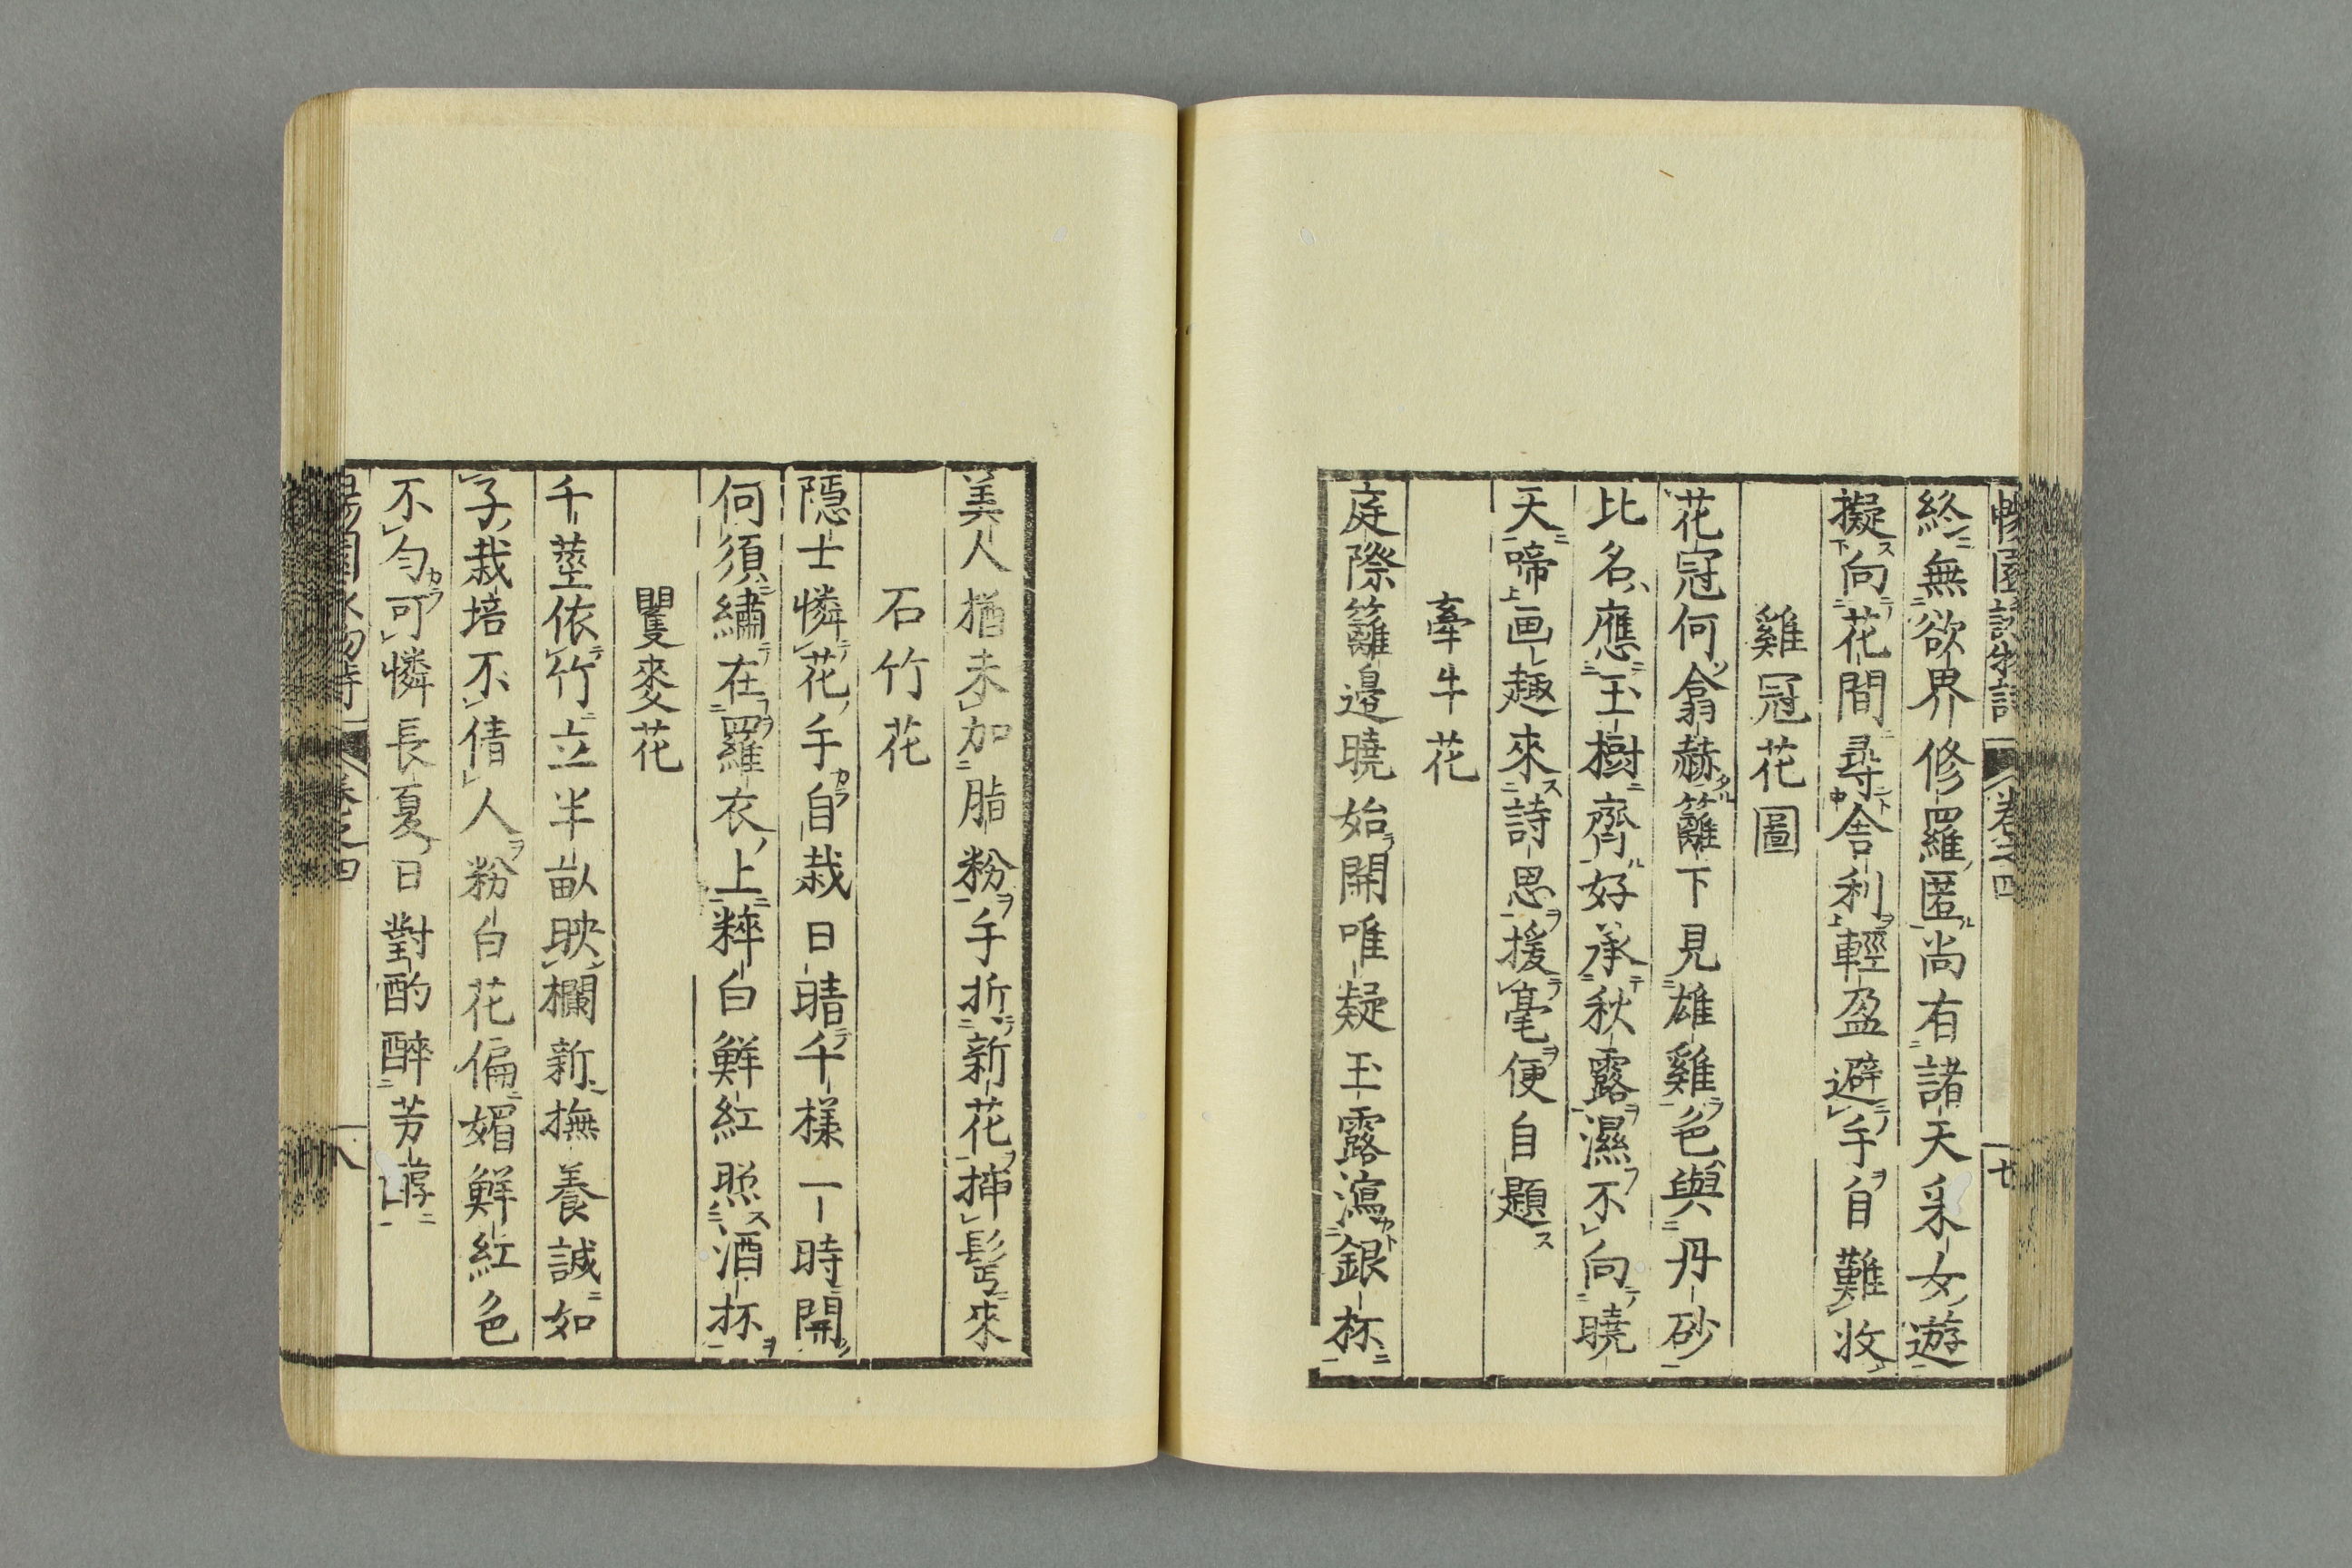 終無欲界修羅匿尚有諸天采女遊
擬向花間尋舎利輕盈避手自難收
雞冠花圖
花冠何翕赫籬下見雄雞色與丹砂
比名應玉樹齊好承秋露濕不向曉
天啼画趣來詩思援毫便自題
牽牛花
庭際籬邉曉始開唯疑玉露瀉銀杯
美人猶未加脂粉手折新花挿髩來
石竹花
隱士憐花手自栽日晴千様一時開
何須繡在羅衣上粹白鮮紅照酒杯
瞿麥花
千莖依竹立半畝映欄新撫養誠如
子栽培不倩人粉白花偏媚鮮紅色
不匀可憐長夏日對酌醉芳醇
卷之四